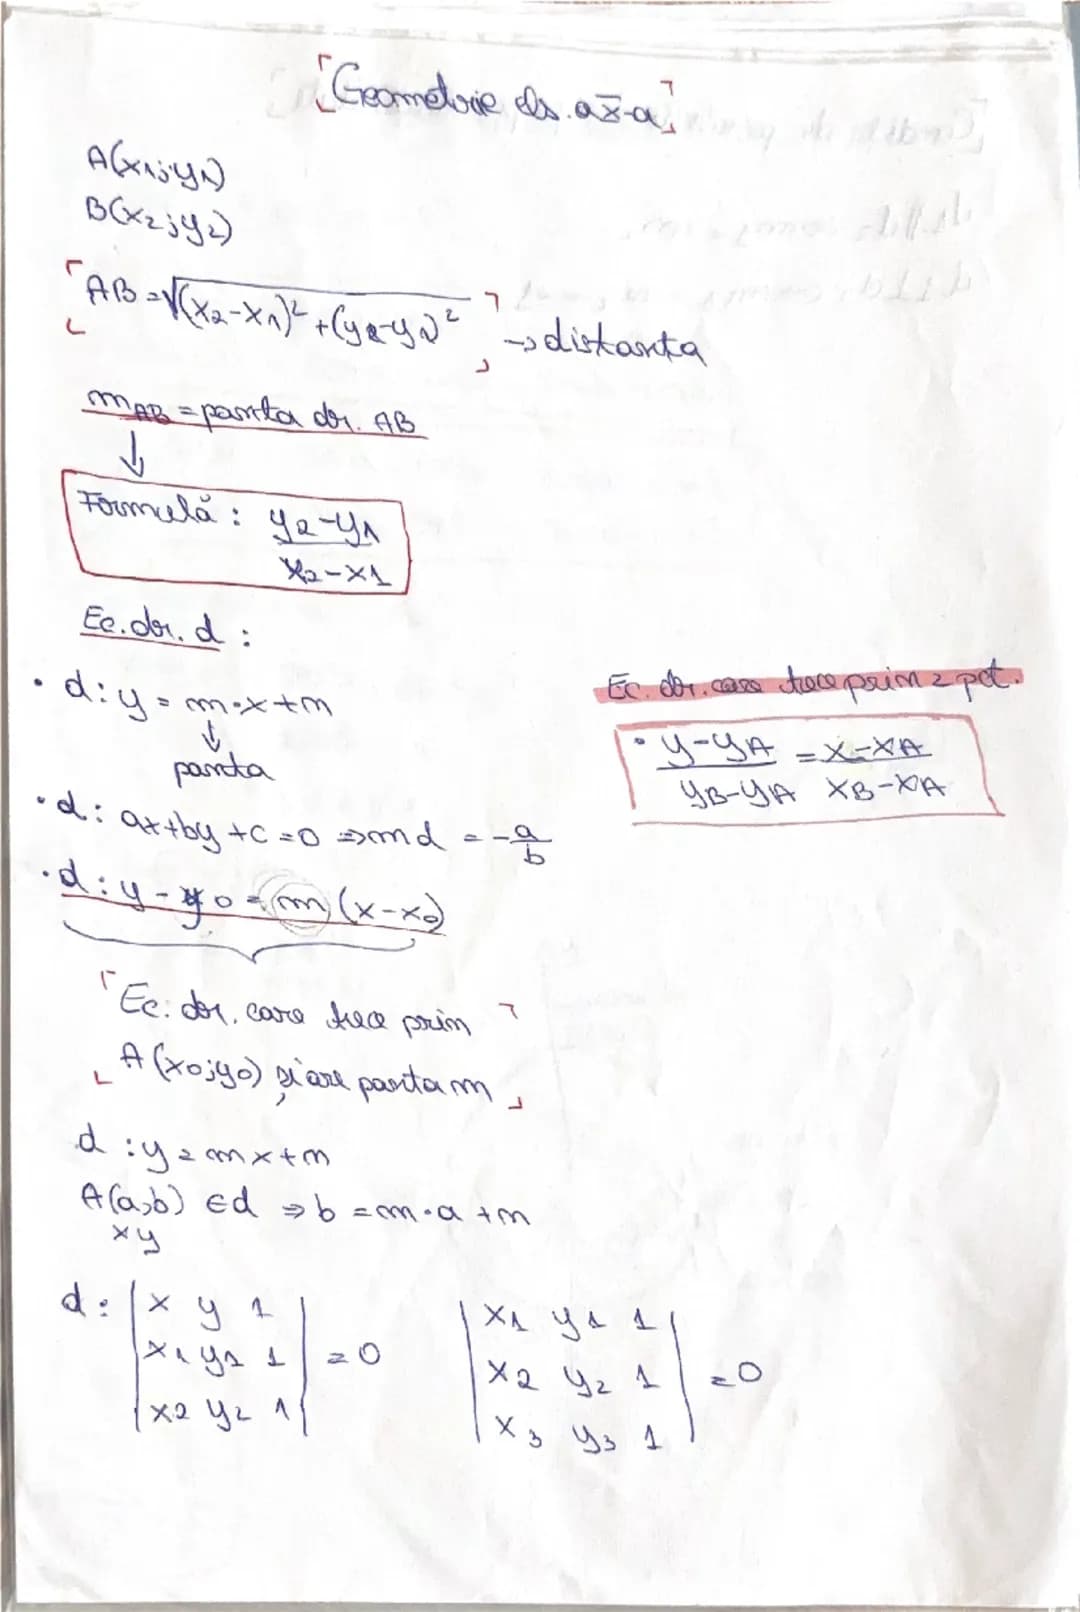 Geometrie cls. a X-a
A(x1;y1)
B(x2;y2)
AB = √(x2-x1)² + (y2-y1)² → distanta
mAB = panta dr. AB
↓
Formulă: y2-y1 / x2-x1
Ec. dr. d:
• d: y = m·x+n
↓
panta
• d: ax+by+c=0 ⇒ md = -a/b
• d: y-y0 = m(x-x0)
Ec. dr. care trece prin
A(x0;y0) și are panta m
Ec. dr. care trece prin 2 pct.
• y-yA / yB-yA = x-xA / xB-xA
d: y = mx+n
A(a,b) ∈ d ⇒ b = m·a+n
x y
d: | x y 1 |
| x1 y1 1 | = 0
| x2 y2 1 |
| x1 y1 1 |
| x2 y2 1 | = 0
| x3 y3 1 |